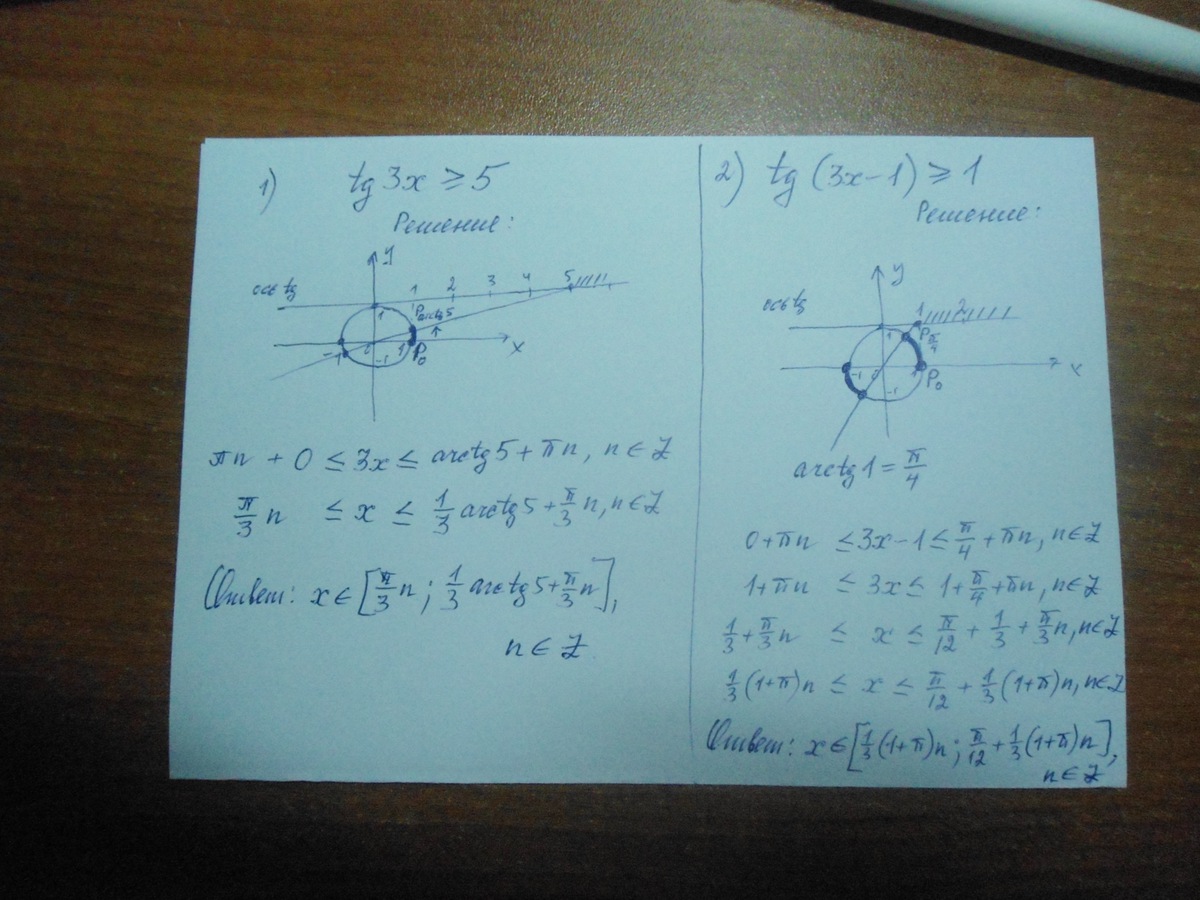 1) tg 3x ≥ 5
Решение:
y
ось tg
1 2 3 4 5
1
P arctg5
-1 0 1 x
-1 P₀
πn + 0 ≤ 3x ≤ arctg 5 + πn, n ∈ Z
π/3 n ≤ x ≤ 1/3 arctg 5 + π/3 n, n ∈ Z
Ответ: x ∈ [π/3 n ; 1/3 arctg 5 + π/3 n],
n ∈ Z.
2) tg (3x-1) ≥ 1
Решение:
y
ось tg
1 2
1 P π/4
-1 0 1 x
-1 P₀
arctg 1 = π/4
0 + πn ≤ 3x-1 ≤ π/4 + πn, n ∈ Z
1 + πn ≤ 3x ≤ 1 + π/4 + πn, n ∈ Z
1/3 + π/3 n ≤ x ≤ π/12 + 1/3 + π/3 n, n ∈ Z
1/3 (1+π)n ≤ x ≤ π/12 + 1/3 (1+π)n, n ∈ Z
Ответ: x ∈ [1/3 (1+π)n ; π/12 + 1/3 (1+π)n],
n ∈ Z